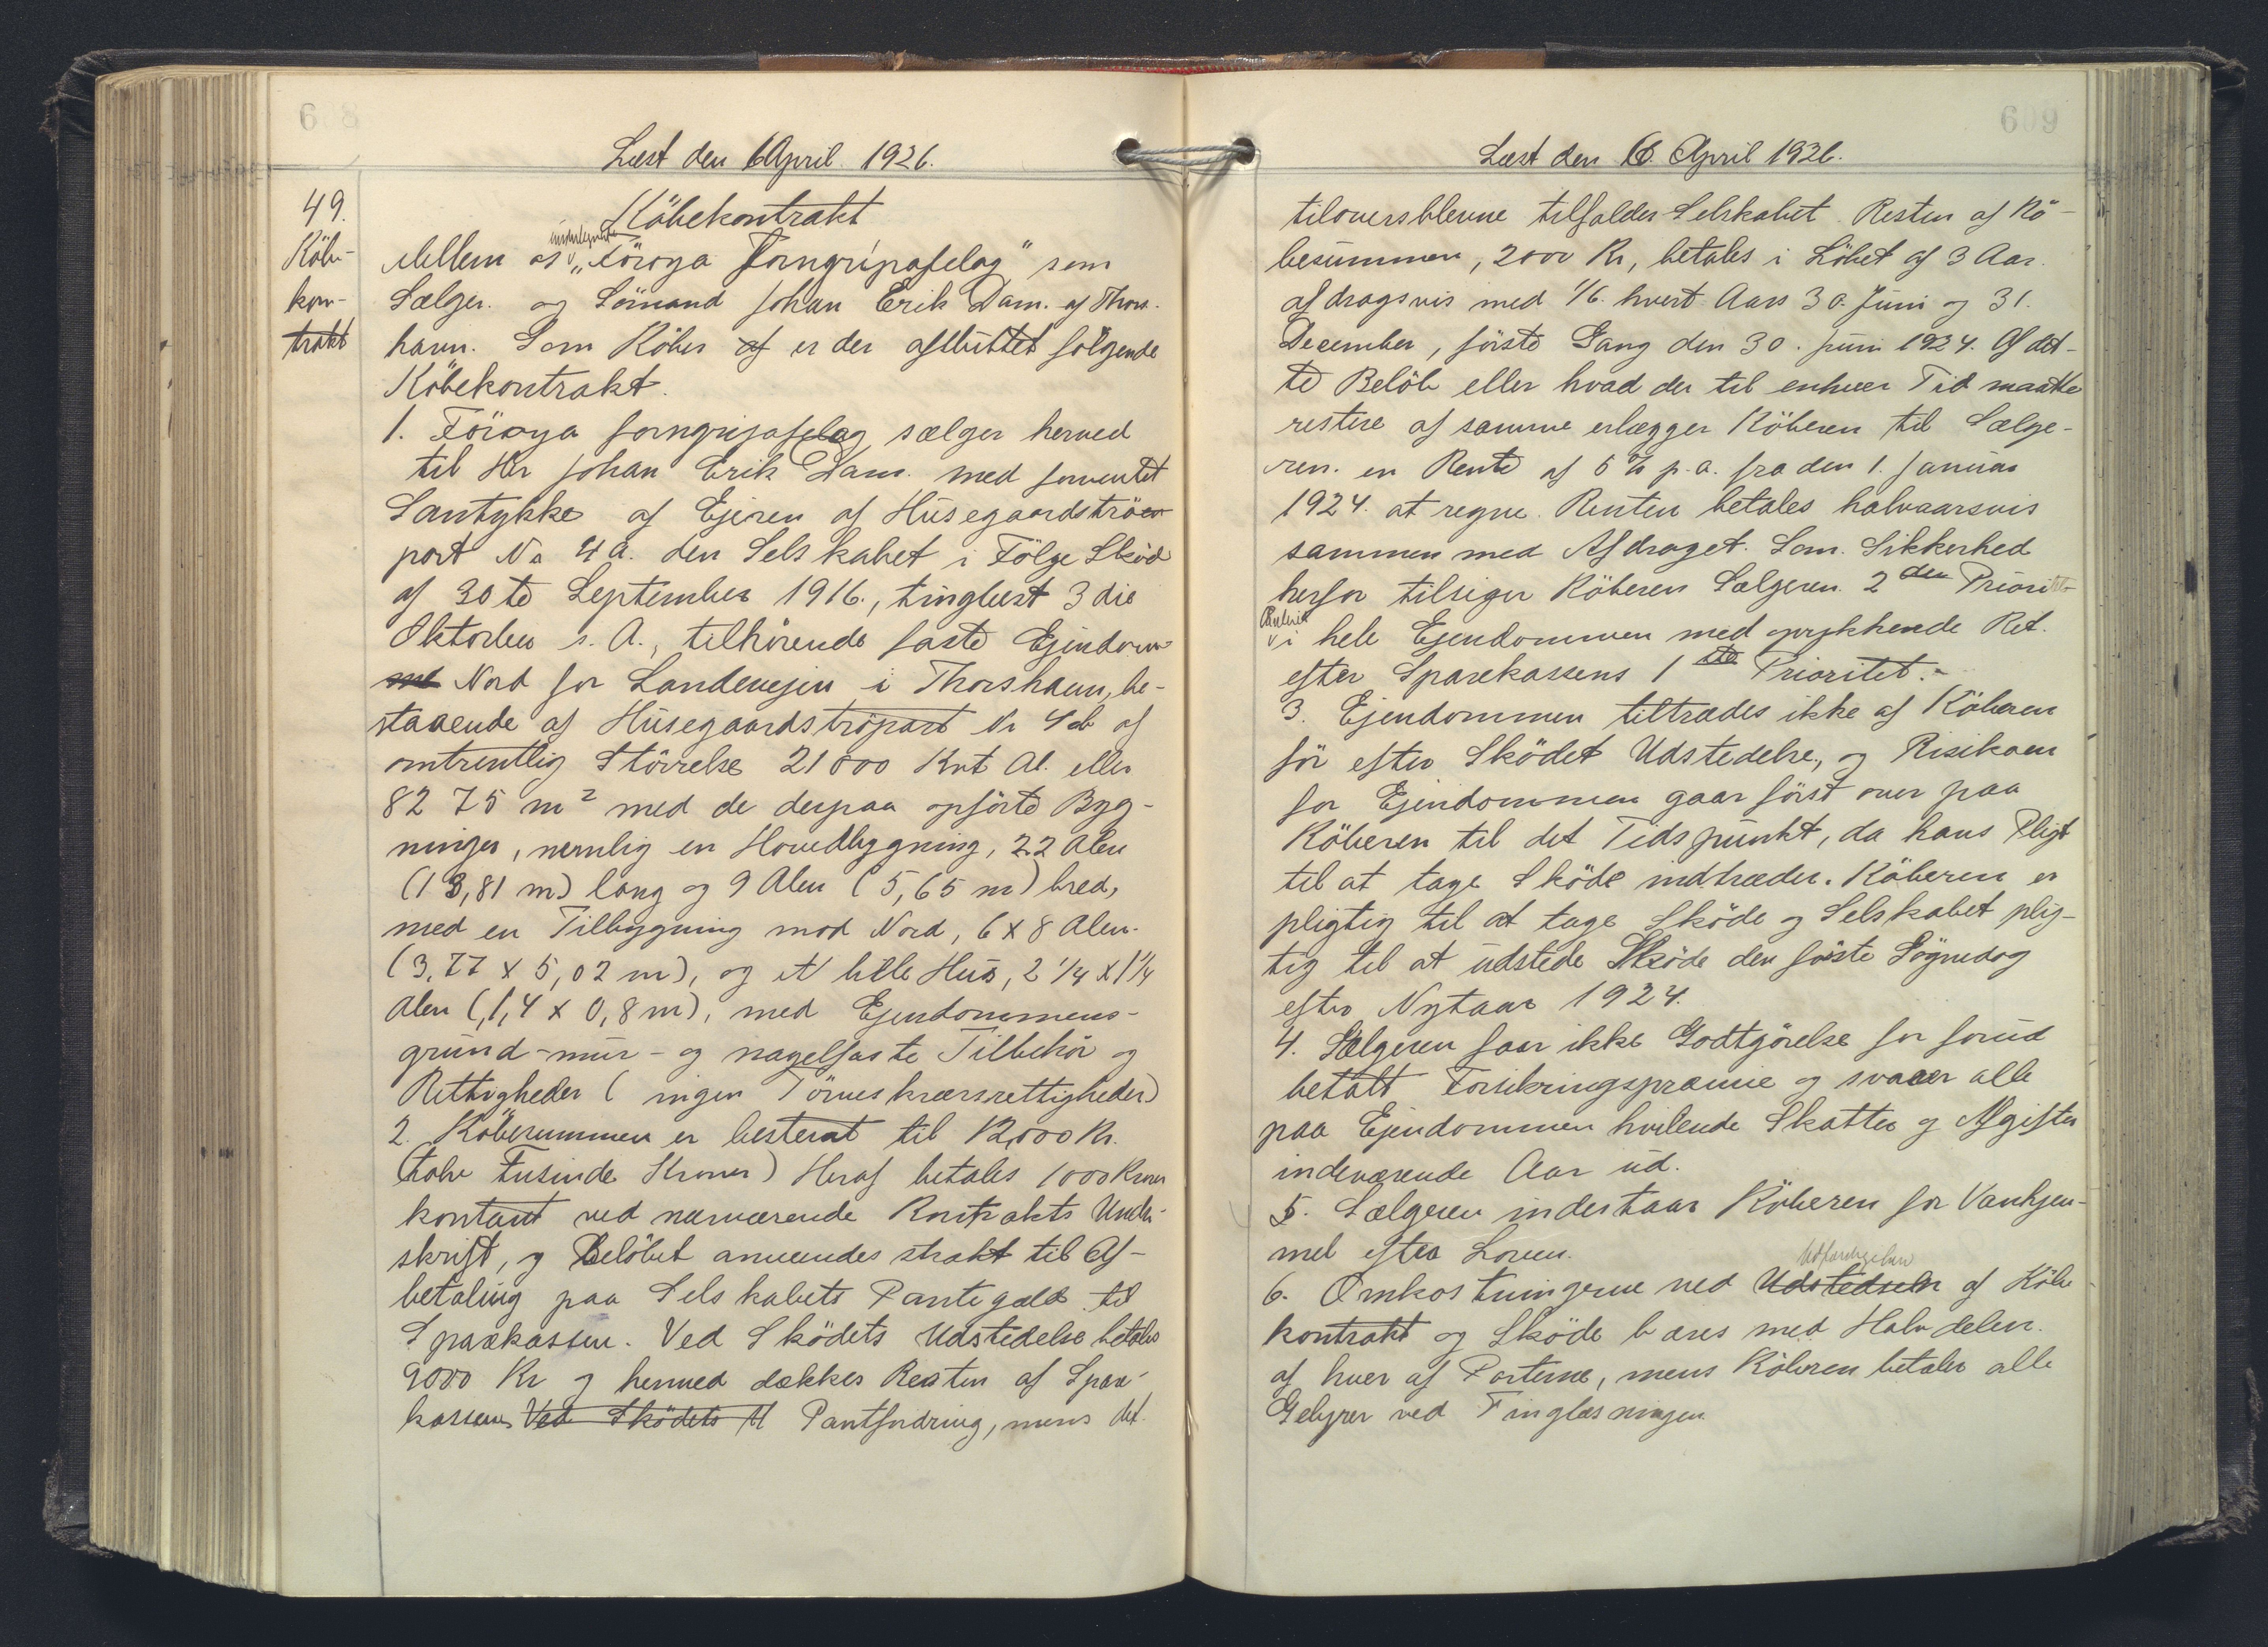 608
Læst den 6 April. 1926.
49.
Köbe-
kon-
trakt
Köbekontrakt
undertegnede
Mellem os „Föroya Forngripafelag" som
Sælger. og Sömand Johan Erik Dam. af Thors-
havn. Som Köber af er der afsluttet fölgende
Köbekontrakt.
1. Föroya forngripafelag sælger herved
til Hr Johan Erik Dam. med forventet
Samtykke af Ejeren af Husegaardströer
part No 4 a. den Selskabet i Fölge Sköde
af 30te September 1916., tinglæst 3die
Oktober s. A., tilhörende faste Ejendom
me Nord for Landevejen i Thorshavn, be-
staaende af Husegaardströpart Nr 4 eb af
omtrentlig Störrelse 21000 Kvt Al. eller
8275 m² med de derpaa opförte Byg-
ninger, nemlig en Hovedbygning, 22 Alen
(13,81 m) lang og 9 Alen (5,65 m) bred,
med en Tilbygning mod Nord, 6 x 8 Alen.
(3,77 x 5,02 m), og et lille Hus, 2 1/4 x 1 1/4
Alen (1,4 x 0,8 m), med Ejendommens-
grund-mur- og nagelfaste Tilbehör og
Rettigheder (ingen Törveskærsrettigheder)
2. Köbesummen er bestemt til 12,000 Kr.
(tolv Tusinde Kroner) Heraf betales 1000 Kroner
kontant ved nærværende Kontrakts Under-
skrift, og Belöbet anvendes strakt til Af-
betaling paa Selskabets Pantegæld til
Sparekassen. Ved Sködets Udstedelse betales
9000 Kr og hermed dækkes Resten af Spare-
kassens Ved Sködets U Pantfordring, mens det
609
Læst den 6. April 1926.
tiloversblevne tilfalder Selskabet. Resten af Kö-
besummen, 2000 Kr, betales i Löbet af 3 Aar.
afdragsvis med 1/6. hvert Aars 30. Juni og 31.
December, förste Gang den 30. Juni 1924. Af det-
te Belöb eller hvad der til enhver Tid maatte
restere af samme erlægger Köberen til Sælge-
ren. en Rente af 5 % p.a. fra den 1. Januar
1924. at regne. Renten betales halvaarsvis
sammen med Afdraget. Som Sikkerhed
herfor tilsiger Köberen Sælgeren. 2den Priorit-
Panteret
i hele Ejendommen med oprykkende Ret.
efter Sparekassens 1ste Prioritet.-
3. Ejendommen tiltrædes ikke af Köberen
för efter Sködet Udstedelse, og Risikoen
for Ejendommen gaar först over paa
Köberen til det Tidspunkt, da hans Pligt
til at tage Sköde indtræder. Köberen er
pligtig til at tage Sköde og Selskabet plig-
tig til at udstede Sköde den förste Sögnedag
efter Nytaar 1924.
4. Sælgeren faar ikke Godtgörelse for forud
betalt Forsikringspræmie og svarer alle
paa Ejendommen hvilende Skatter og Afgifter
indeværende Aar ud.
5. Sælgeren indestaar Köberen for Vanhjem-
mel efter Loven.
Udfærdigelsen
6. Omkostningerne ved Udstedseln af Köbe-
kontrakt og Sköde bæres med Halvdelen.
af hver af Parterne, mens Köberen betaler alle
Gebyrer ved Tinglæsningen